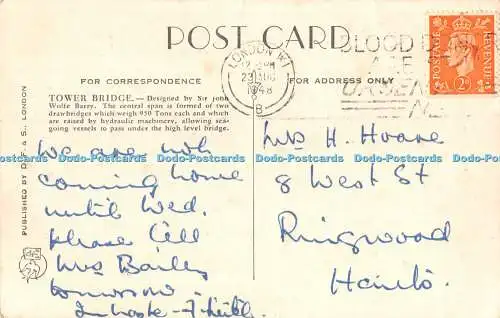 POST CARD
FOR CORRESPONDENCE
TOWER BRIDGE.— Designed by Sir John
Wolfe Barry. The central span is formed of two
drawbridges which weigh 950 Tons each and which
are raised by hydraulic machinery, allowing sea-
going vessels to pass under the high level bridge.
We are not
coming home
until Wed.
please tell
Mrs Bailey
tomorrow.
In haste
PUBLISHED BY D.F. & S., LONDON
FOR ADDRESS ONLY
LONDON W.1
1948
B
BLOOD
ARE
URGEN
POSTAGE
REVENUE
2D
Mrs H. Hoare
8 West St
Ringwood
Hants.
Dodo-Postcards Dodo-Postcards Dodo-Postcards Dodo-Postcards Dodo-Postcards